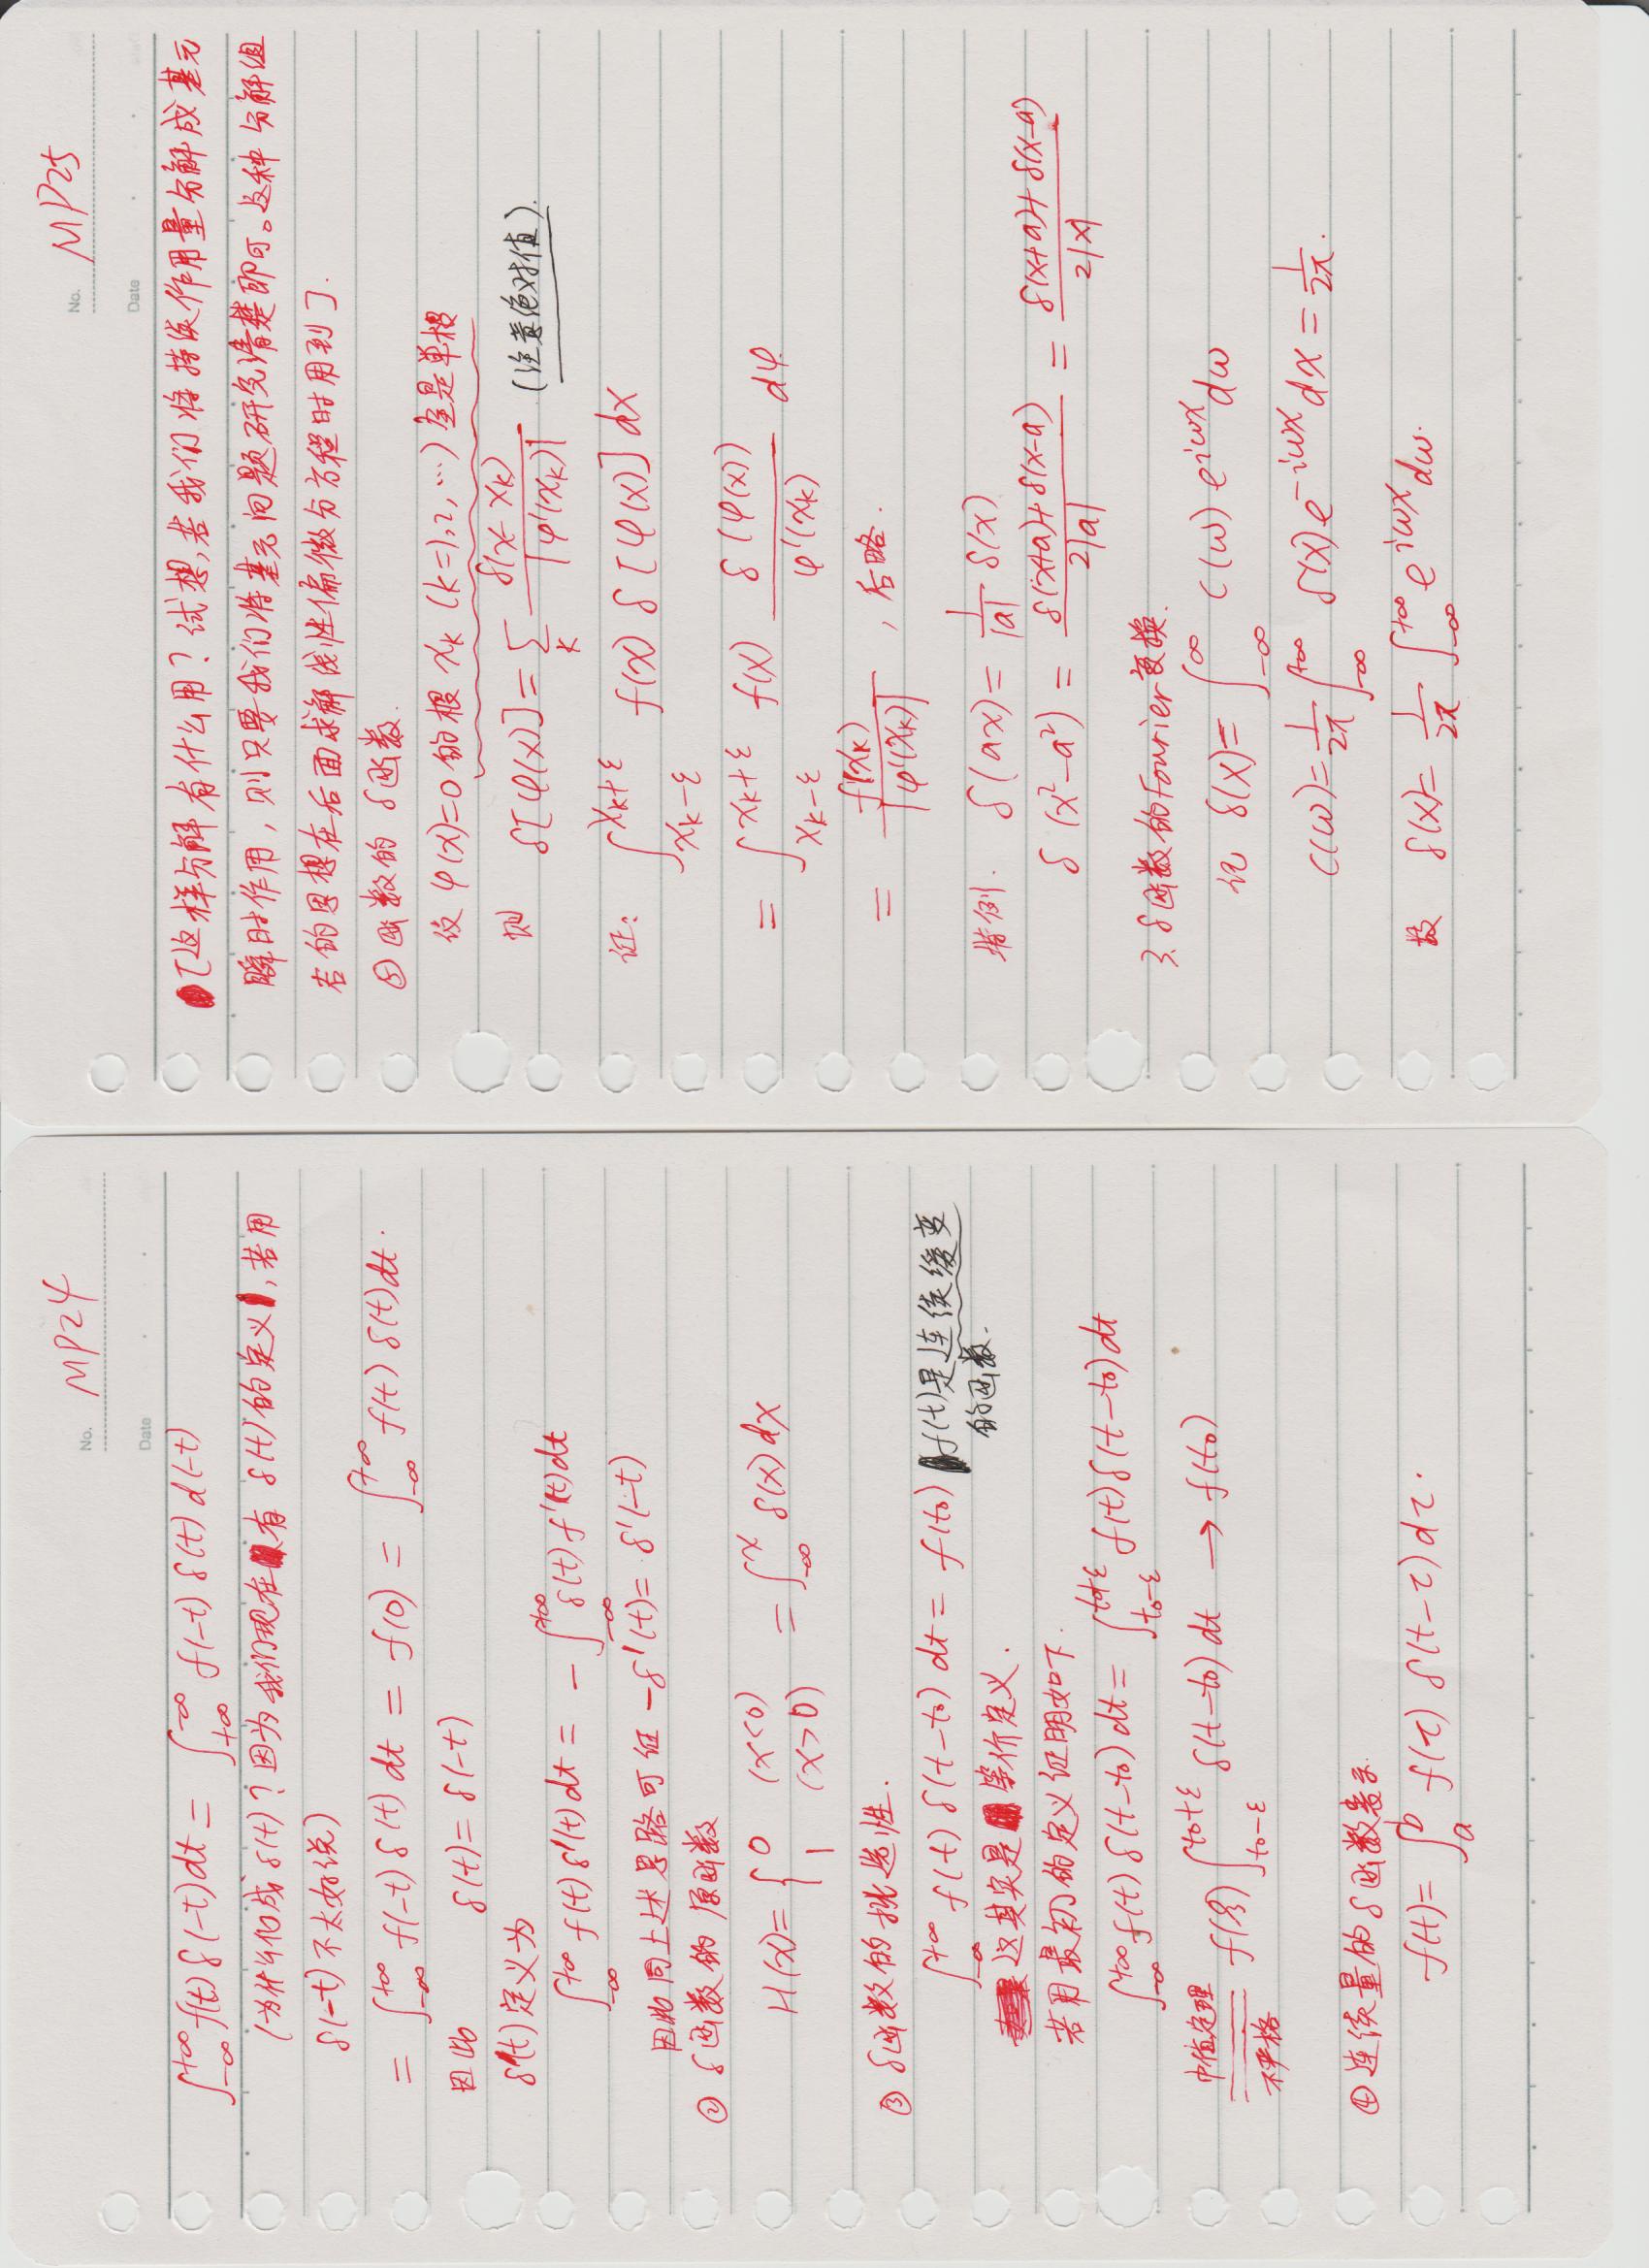 No. MP24
Date
∫_{-∞}^{+∞} f(t) δ(-t) dt = ∫_{+∞}^{-∞} f(-t) δ(t) d(-t)
(为什么化成 δ(t)？因为我们现在有 δ(t) 的定义，若用
δ(-t) 不太好说)
= ∫_{-∞}^{+∞} f(-t) δ(t) dt = f(0) = ∫_{-∞}^{+∞} f(t) δ(t) dt.
因此 δ(t) = δ(-t)
δ'(t) 定义为
∫_{-∞}^{+∞} f(t) δ'(t) dt = - ∫_{-∞}^{+∞} δ(t) f'(t) dt
因此同上述思路可证 -δ'(t) = δ'(-t)
② δ函数的原函数
H(x) = { 0 (x<0)
1 (x>0) = ∫_{-∞}^{x} δ(x) dx
③ δ函数的挑选性.
∫_{-∞}^{+∞} f(t) δ(t-t₀) dt = f(t₀) f(t)是连续缓变
的函数.
这其实是等价定义.
若用最初的定义证明如下.
∫_{-∞}^{+∞} f(t) δ(t-t₀) dt = ∫_{t₀-ε}^{t₀+ε} f(t) δ(t-t₀) dt
中值定理
f(ξ) ∫_{t₀-ε}^{t₀+ε} δ(t-t₀) dt → f(t₀)
不严格
④ 连续量的 δ 函数表示.
f(t) = ∫_{a}^{b} f(τ) δ(t-τ) dτ.
No. MP25
Date
[这样分解有什么用？试想,若我们将持续作用量分解成基元
瞬时作用，则只要我们将基元问题研究清楚即可。这种分解组
合的思想在后面求解线性偏微分方程时用到].
⑤ 函数的 δ函数.
设 φ(x)=0 的根 x_k (k=1,2,…) 全是单根
则 δ[φ(x)] = Σ_k δ(x-x_k)/|φ'(x_k)| (注意绝对值).
证: ∫_{x_k-ε}^{x_k+ε} f(x) δ[φ(x)] dx
= ∫_{x_k-ε}^{x_k+ε} f(x) δ(φ(x))/φ'(x_k) dφ
= f(x_k)/|φ'(x_k)| , 后略.
特例. δ(ax) = 1/|a| δ(x)
δ(x²-a²) = (δ(x+a)+δ(x-a))/2|a| = (δ(x+a)+δ(x-a))/2|x|
3. δ函数的Fourier变换.
记 δ(x) = ∫_{-∞}^{∞} C(ω) e^{iωx} dω
C(ω) = 1/2π ∫_{-∞}^{+∞} δ(x) e^{-iωx} dx = 1/2π.
故 δ(x) = 1/2π ∫_{-∞}^{+∞} e^{iωx} dω.